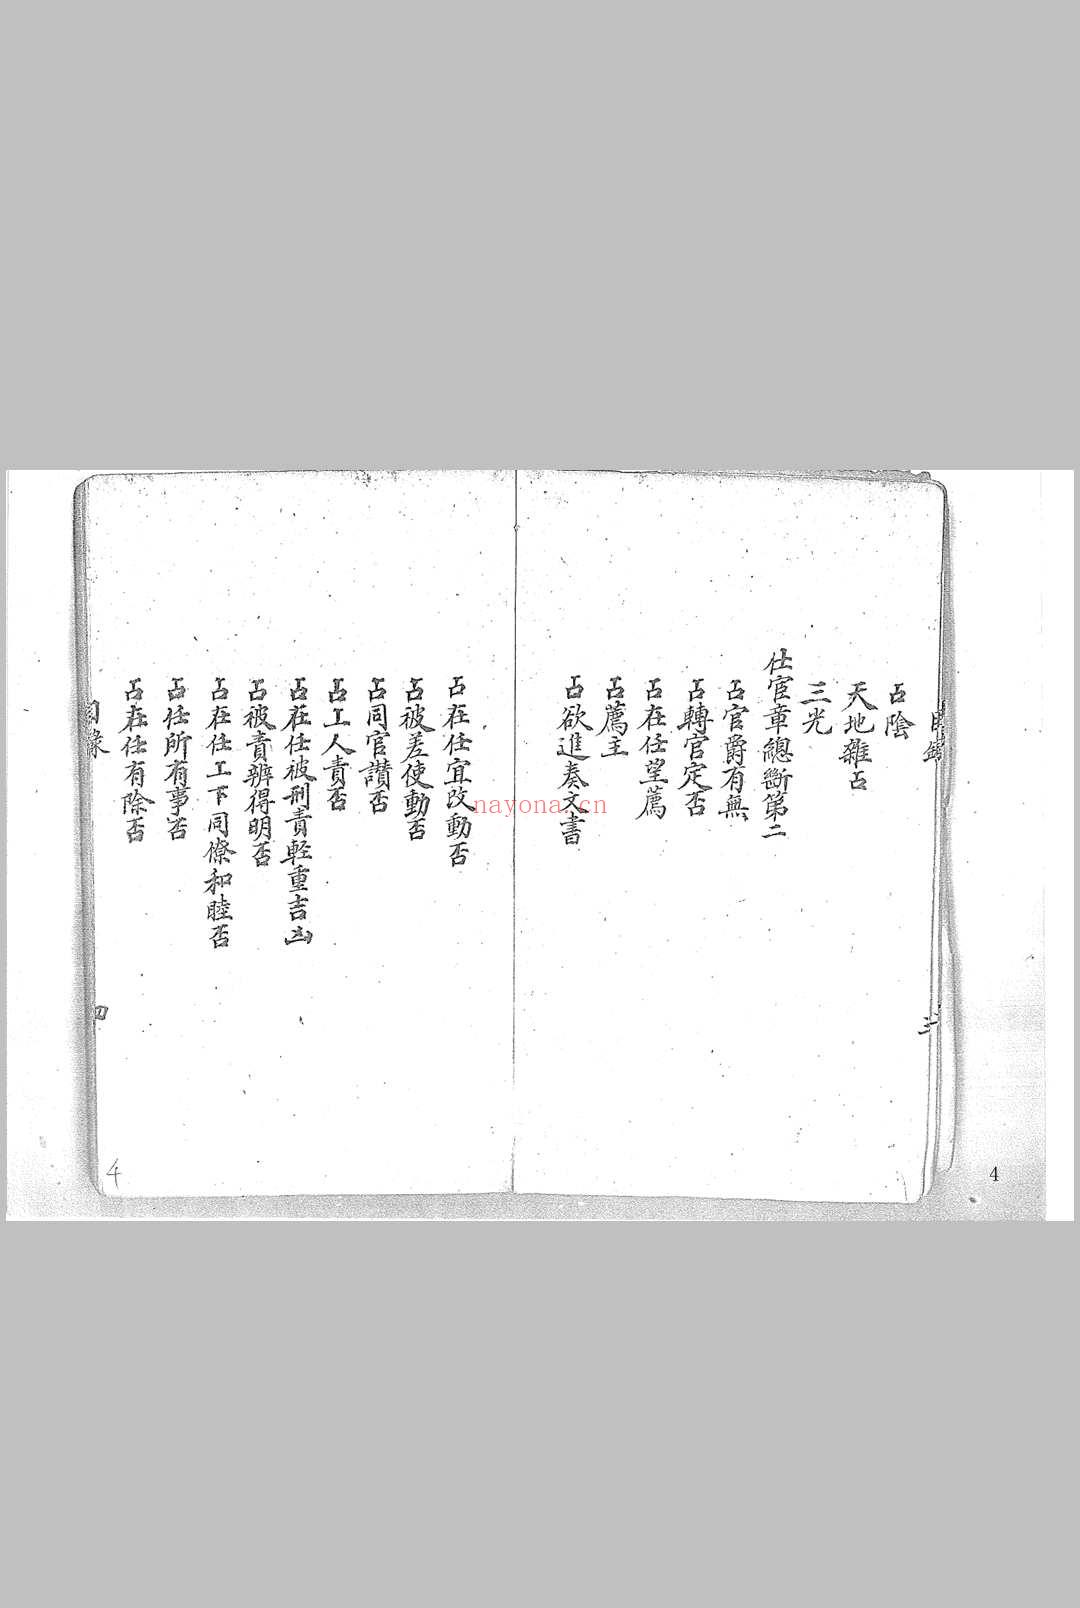 占陰
天地雜占
三光
仕宦章總斷第二
占官爵有無
占轉官定否
占在任望薦
占薦主
占欲進奏文書
三
占在任宜改動否
占被差使動否
占同官讃否
占工人責否
占在任被刑責軽重吉凶
占被責辨得明否
占在任工下同僚和睦否
占任所有事否
占在任有除否
目錄
四
nayona.cn
4
4